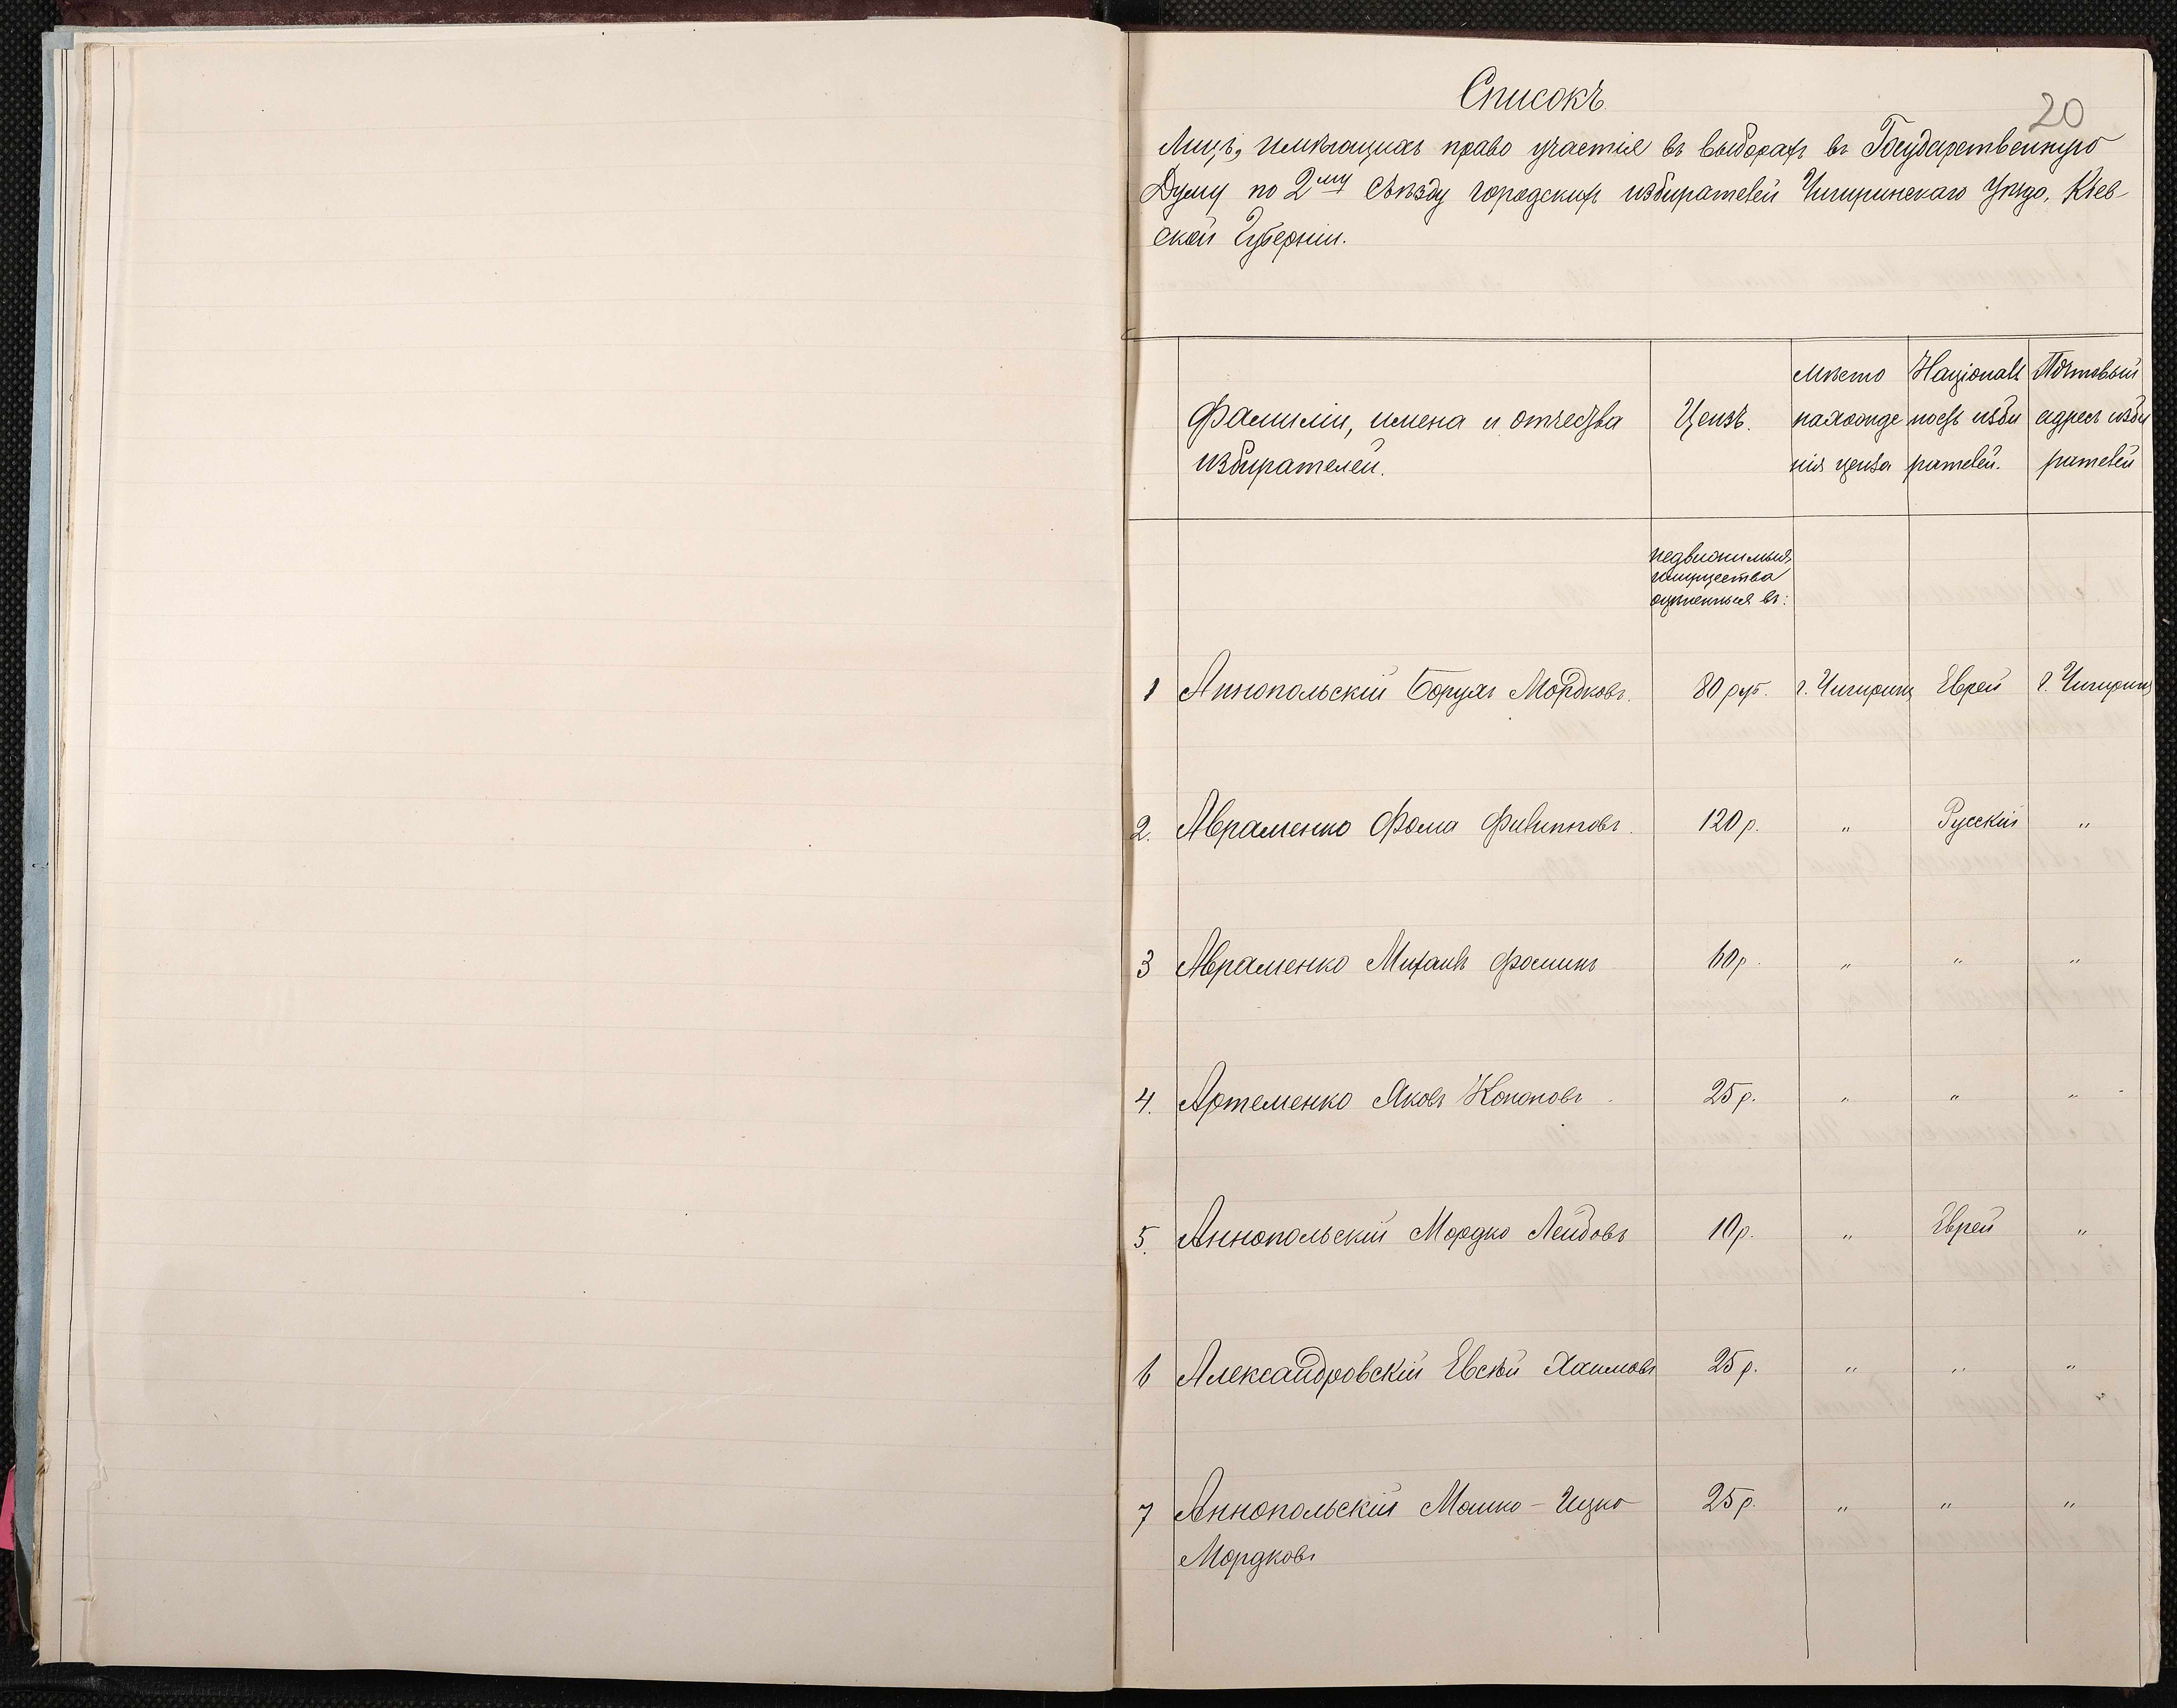 Списокъ
20
Лицъ, имѣющихъ право участія въ выборахъ въ Государственную
Думу по 2му Съѣзду городскихъ избирателей Чигиринскаго Уѣзда, Кіев-
ской Губерніи.
Фамиліи, имена и отчества избирателей. | Цензъ. | Мѣсто нахожде нія ценза | Націонал ность изби рателей. | Почтовый адресъ изби рателей
недвижимыя
имущества
оцѣненныя въ:
1 Аннопольскій Борухъ Мордковъ. 80 руб. г. Чигиринъ Еврей г. Чигиринъ
2. Авраменко Фома Филипповъ. 120 р. " Русскій "
3 Авраменко Михаилъ Фоминъ 60 р. " " "
4. Артеменко Яковъ Кононовъ 25 р. " " "
5. Аннопольскій Мордко Лейбовъ 10 р. " Еврей "
6 Александровскій Евсѣй Хаимовъ 25 р. " " "
7 Аннопольскій Мошко-Ицко 25 р. " " "
Мордковъ